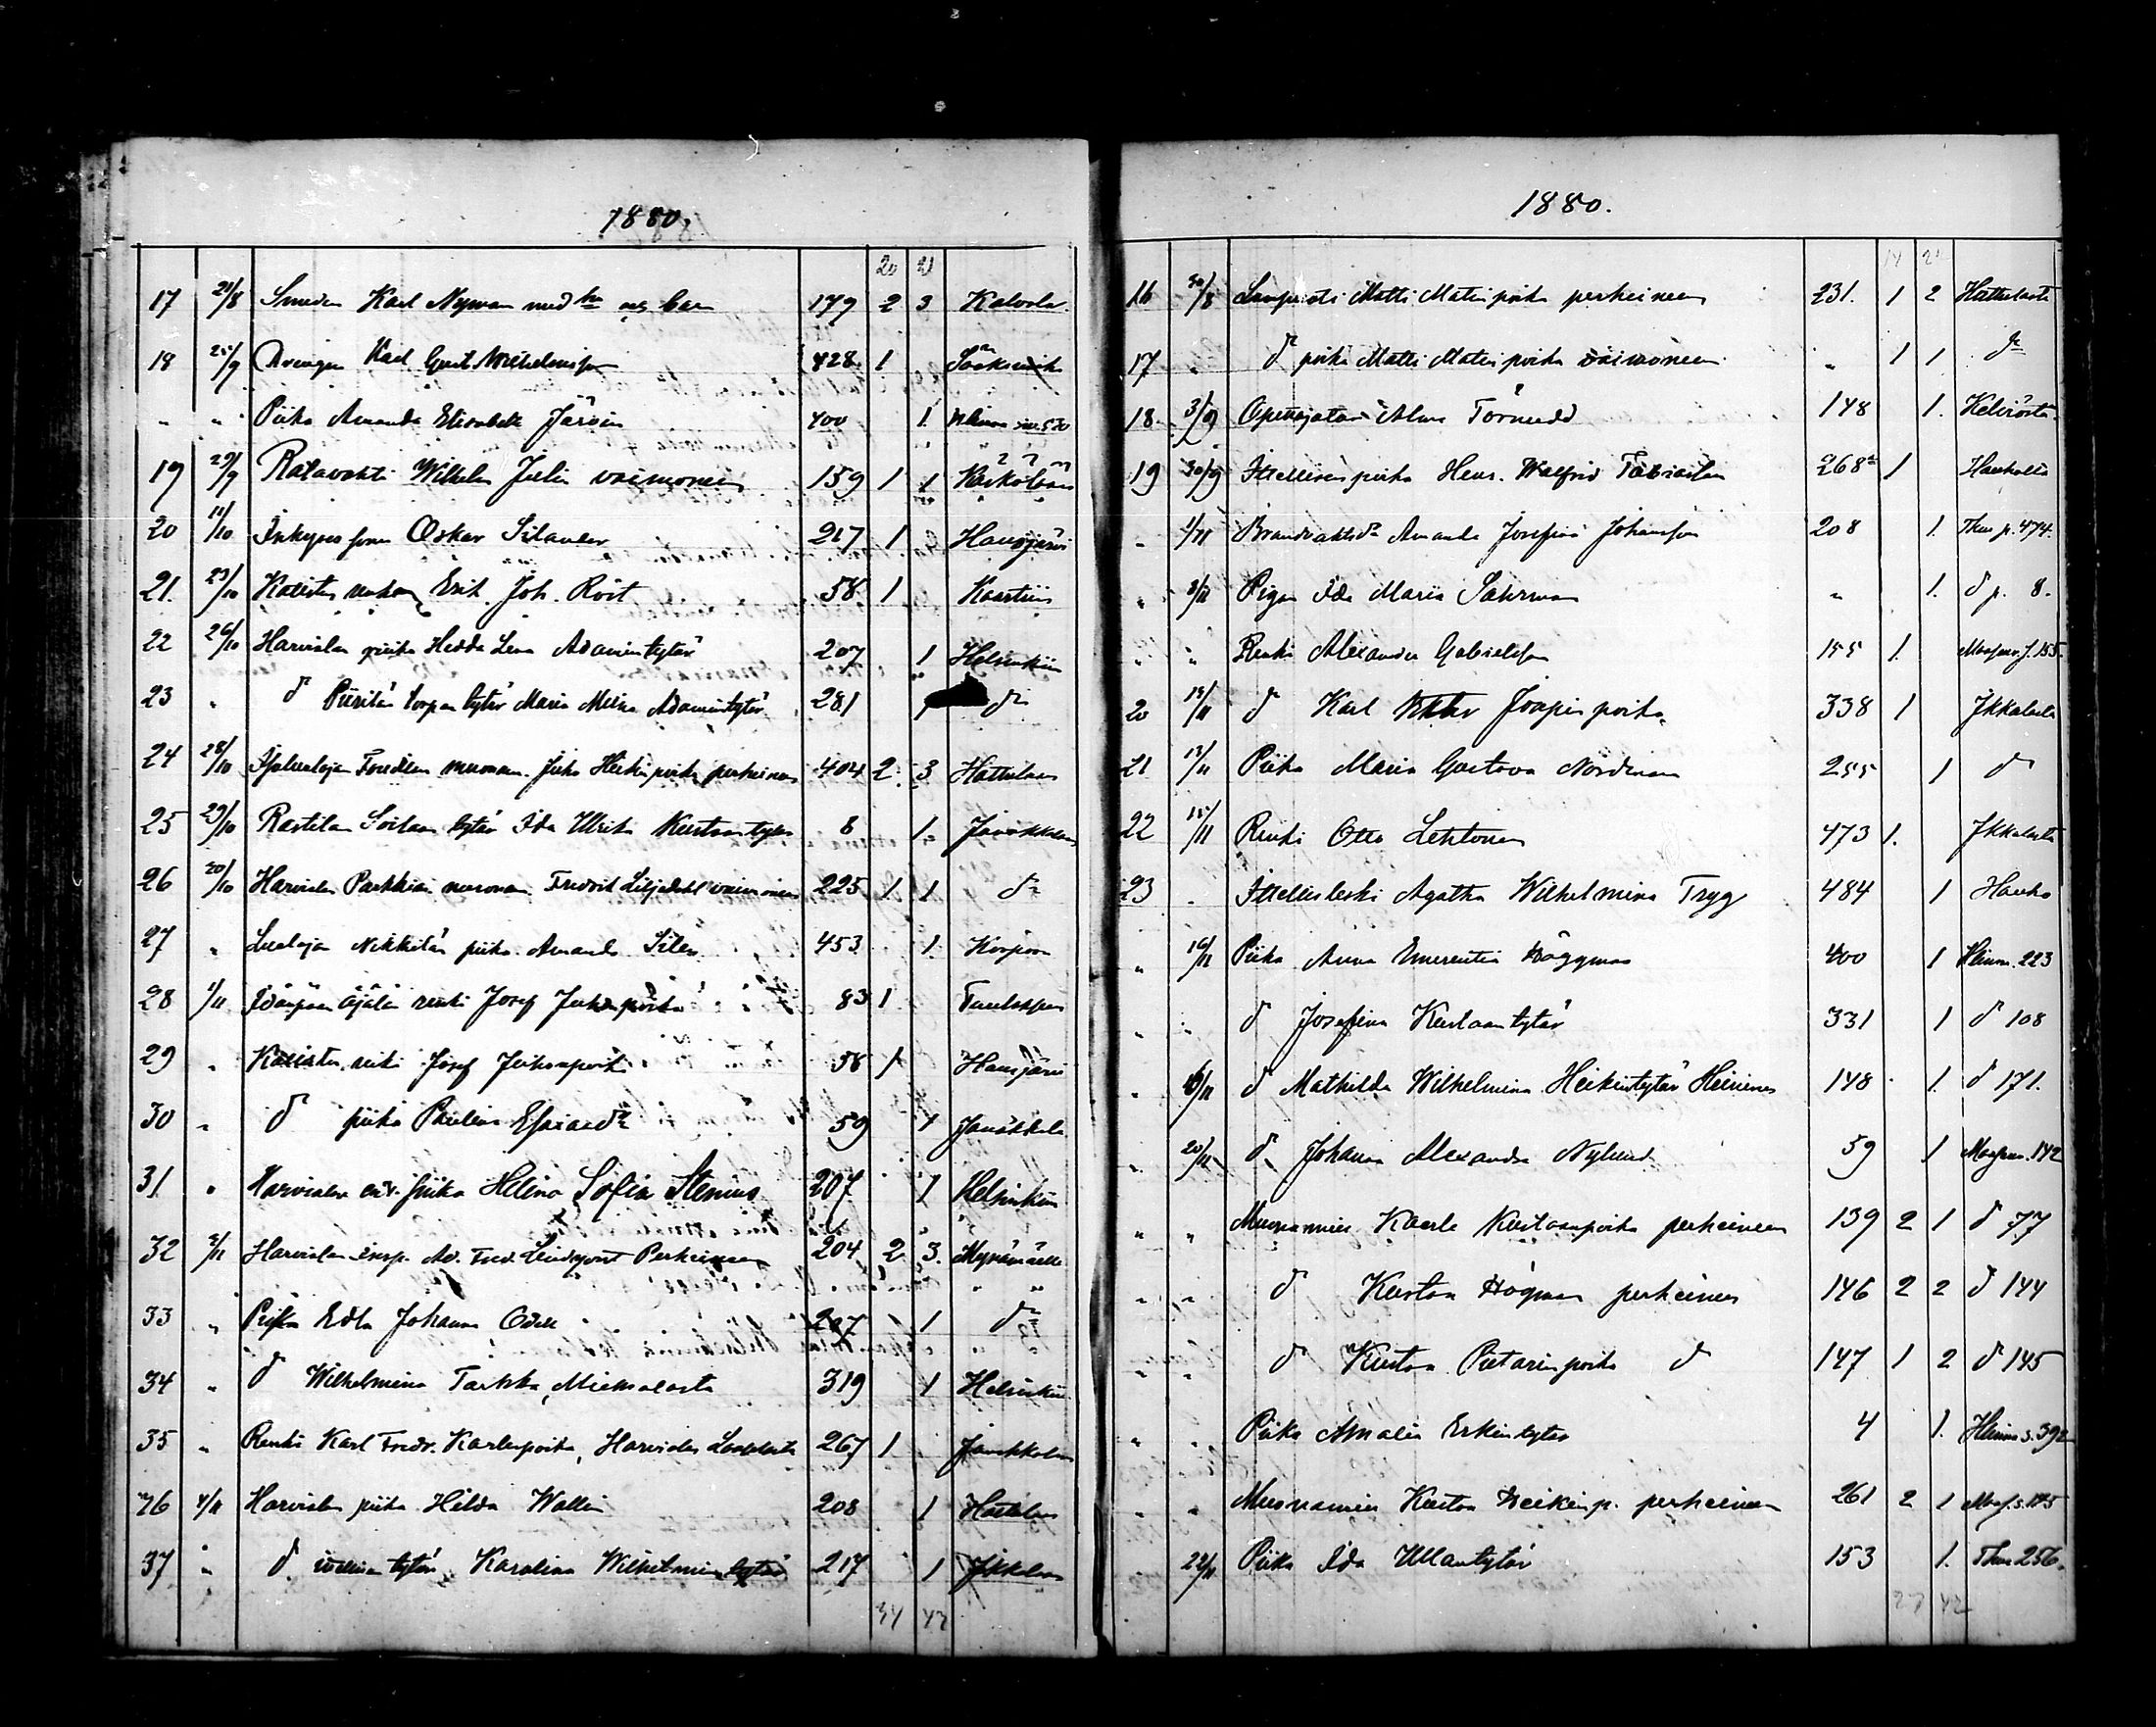 1880.
20 21
17 21/8 Smeden Karl Nyman med hu och barn 179 2 3 Kalvola
18 25/9 Drengen Karl Gust Wilhelmsson 428 1
" " Piika Amanda Elisabeth Järvin 400 1
19 29/9 Ratavahti Wilhelm Julin vaimoneen 159 1 1 Kärkölään
20 11/10 Oskar Silander 217 1 Hausjärvi
21. 23/10 Erik Joh. Roit 58 1 Kaartiin
22 26/10 Harvialan piika Hedda Lena Adamintytär 207 1 Helsinkiin
23 " do torpan tytär Maria Miina Adamintytär 281 1 do
24 28/10 muonam. Juho Heikinpoika perheineen 404 2 3 Hattulaan
25 29/10 Rastilan tytär Ida Ulrika Kustaantytär 8 1. Janakkalaan
26 30/10 Harvialan Parkkia muonam. Fredrik Liljedahl vaimoineen 225 1 1 do
27 " Nikkilän piika Amanda Silen 453 1 Korpoon
28 1/11 Äjälä renki Josef Juhanpoika 83 1
29 " renki Josef Juhonpoika 58 1 Hausjärvi
30 " do piika Paulina Esaiasdr 59 1 Janakkala
31 " Harvialan piika Helena Sofia Stenius 207 1 Helsinkiin
32 2/11 Harvialan insp. Ad. Fred. Lindqvist Perheineen 204 2 3. Mynämäelle
33 " Piika Edla Johanna Odell 207 1 do
34 " do Wilhelmina Tarkka, Miemalasta 319 1 Helsinkiin
35 " Renki Karl Fredr. Karlenpoika, Harvialan 267 1 Janakkalaan
36 4/11 Harvialan piika Hilda Wallin 208 1 Hattulaan
37 " do tytär Karolina Wilhelmina 217 1
34 42
1880.
14 21
16 30/8 Lampuoti Matti Matinpoika perheineen 231. 1 2 Hattulasta
17 " do poika Matti Matinpoika vaimoneen " 1 1 do
18. 3/9 Opettajatar Alma Törnudd 148 1.
19 30/9 Itsellisenpoika Henr. Walfrid 268 1 Hauholta
" 1/11 Brandvaktsdr Amanda Josefina Johansson 208 1. p. 474.
" 3/11 Pigan Ida Maria Sahrman " 1. do p. 8.
" " Renki Alexander Gabrielsson 155 1. 155.
20 13/11 do Karl Viktor Joopinpoika 338 1
21 13/11 Piika Maria Gustava Nordman 255 1 do
22 15/11 Renki Otto Lehtonen 473 1.
23 " Agatha Wilhelmina Tryg 484 1 Hauho
" 16/11 Piika Anna Emerentia Häggman 400 1 223
" " do Josefina Kustaantytär 331 1 do 108
" 16/11 do Mathilda Wilhelmina Heikintytär Heinonen 148 1. do 171.
" 20/11 do Johanna Alexandra Nylund 59 1 142
" " Muonamies Kaarle Kustaanpoika perheineen 139 2 1 do 77
" " do Kustaa Högman perheineen 146 2 2 do 144
" " do Kustaa Pietarinpoika do 147 1 2 do 145
" " Piika Amalia Erkintytär 4 1. s. 392
" " Muonamies Kustaa Heikinp. perheineen 261 2 1
" 22/11 Piika Ida Ullantytär 153 1. 256.
27 42